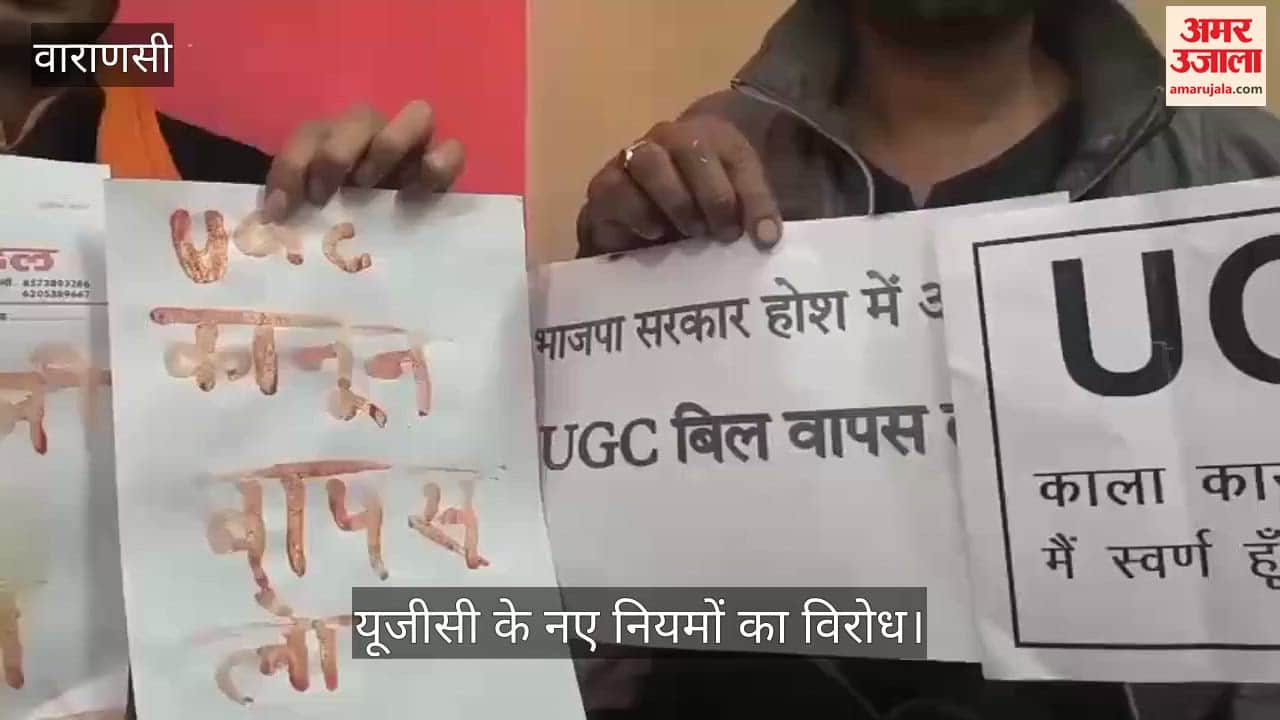 वाराणसी
अमर
उजाला
amarujala.com
8573893286
6205389667
UGC
कानून
वापस
लो
भाजपा सरकार होश में
UGC बिल वापस
U
काला
मैं स्वर्ण हूँ
यूजीसी के नए नियमों का विरोध।